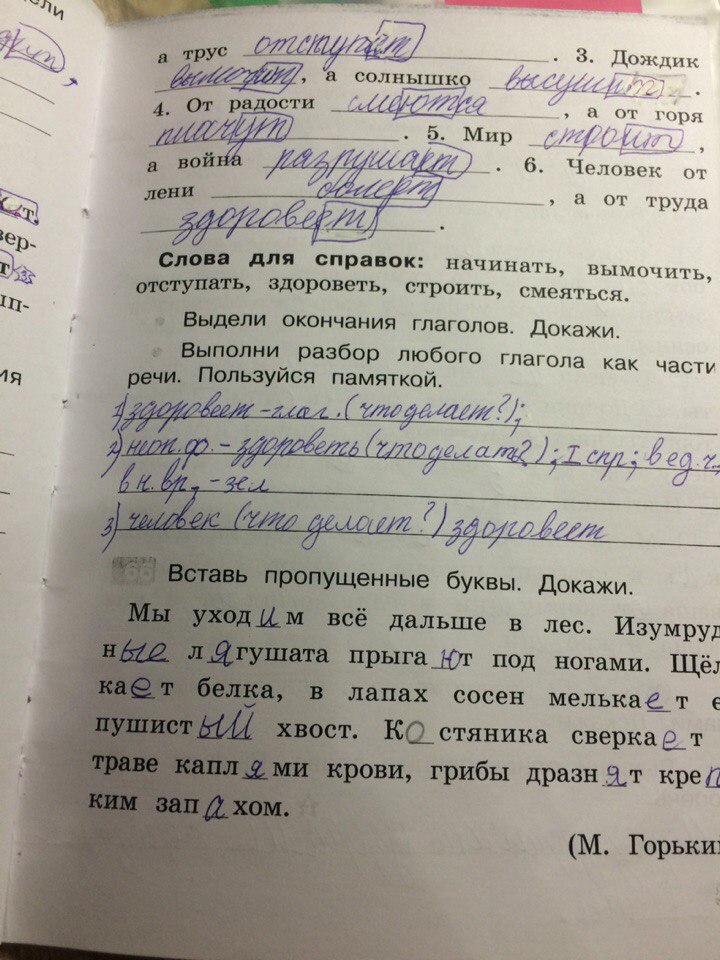 ели
а трус отступает . 3. Дождик
вымочит , а солнышко высушит .
4. От радости смеются , а от горя
плачут . 5. Мир строит ,
а война разрушает . 6. Человек от
лени болеет , а от труда
здоровеет .
Слова для справок: начинать, вымочить,
отступать, здороветь, строить, смеяться.
Выдели окончания глаголов. Докажи.
Выполни разбор любого глагола как части
речи. Пользуйся памяткой.
1) здоровеет - глаг. (что делает?);
2) неоп. ф. - здороветь (что делать?); I спр; в ед. ч.,
в н. вр,
3) человек (что делает?) здоровеет
66 Вставь пропущенные буквы. Докажи.
Мы уходим всё дальше в лес. Изумруд
ные лягушата прыгают под ногами. Щёл
кает белка, в лапах сосен мелькает е
пушистый хвост. Костяника сверкает
траве каплями крови, грибы дразнят креп
ким запахом.
(М. Горьки